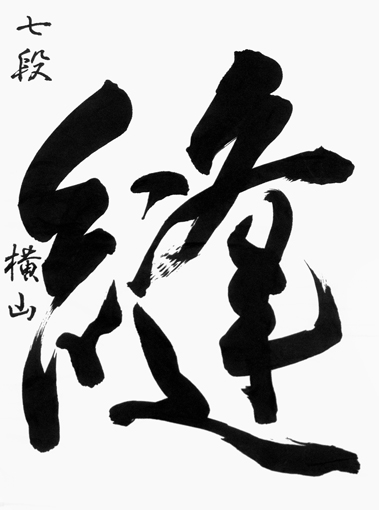 縫
七段
横山